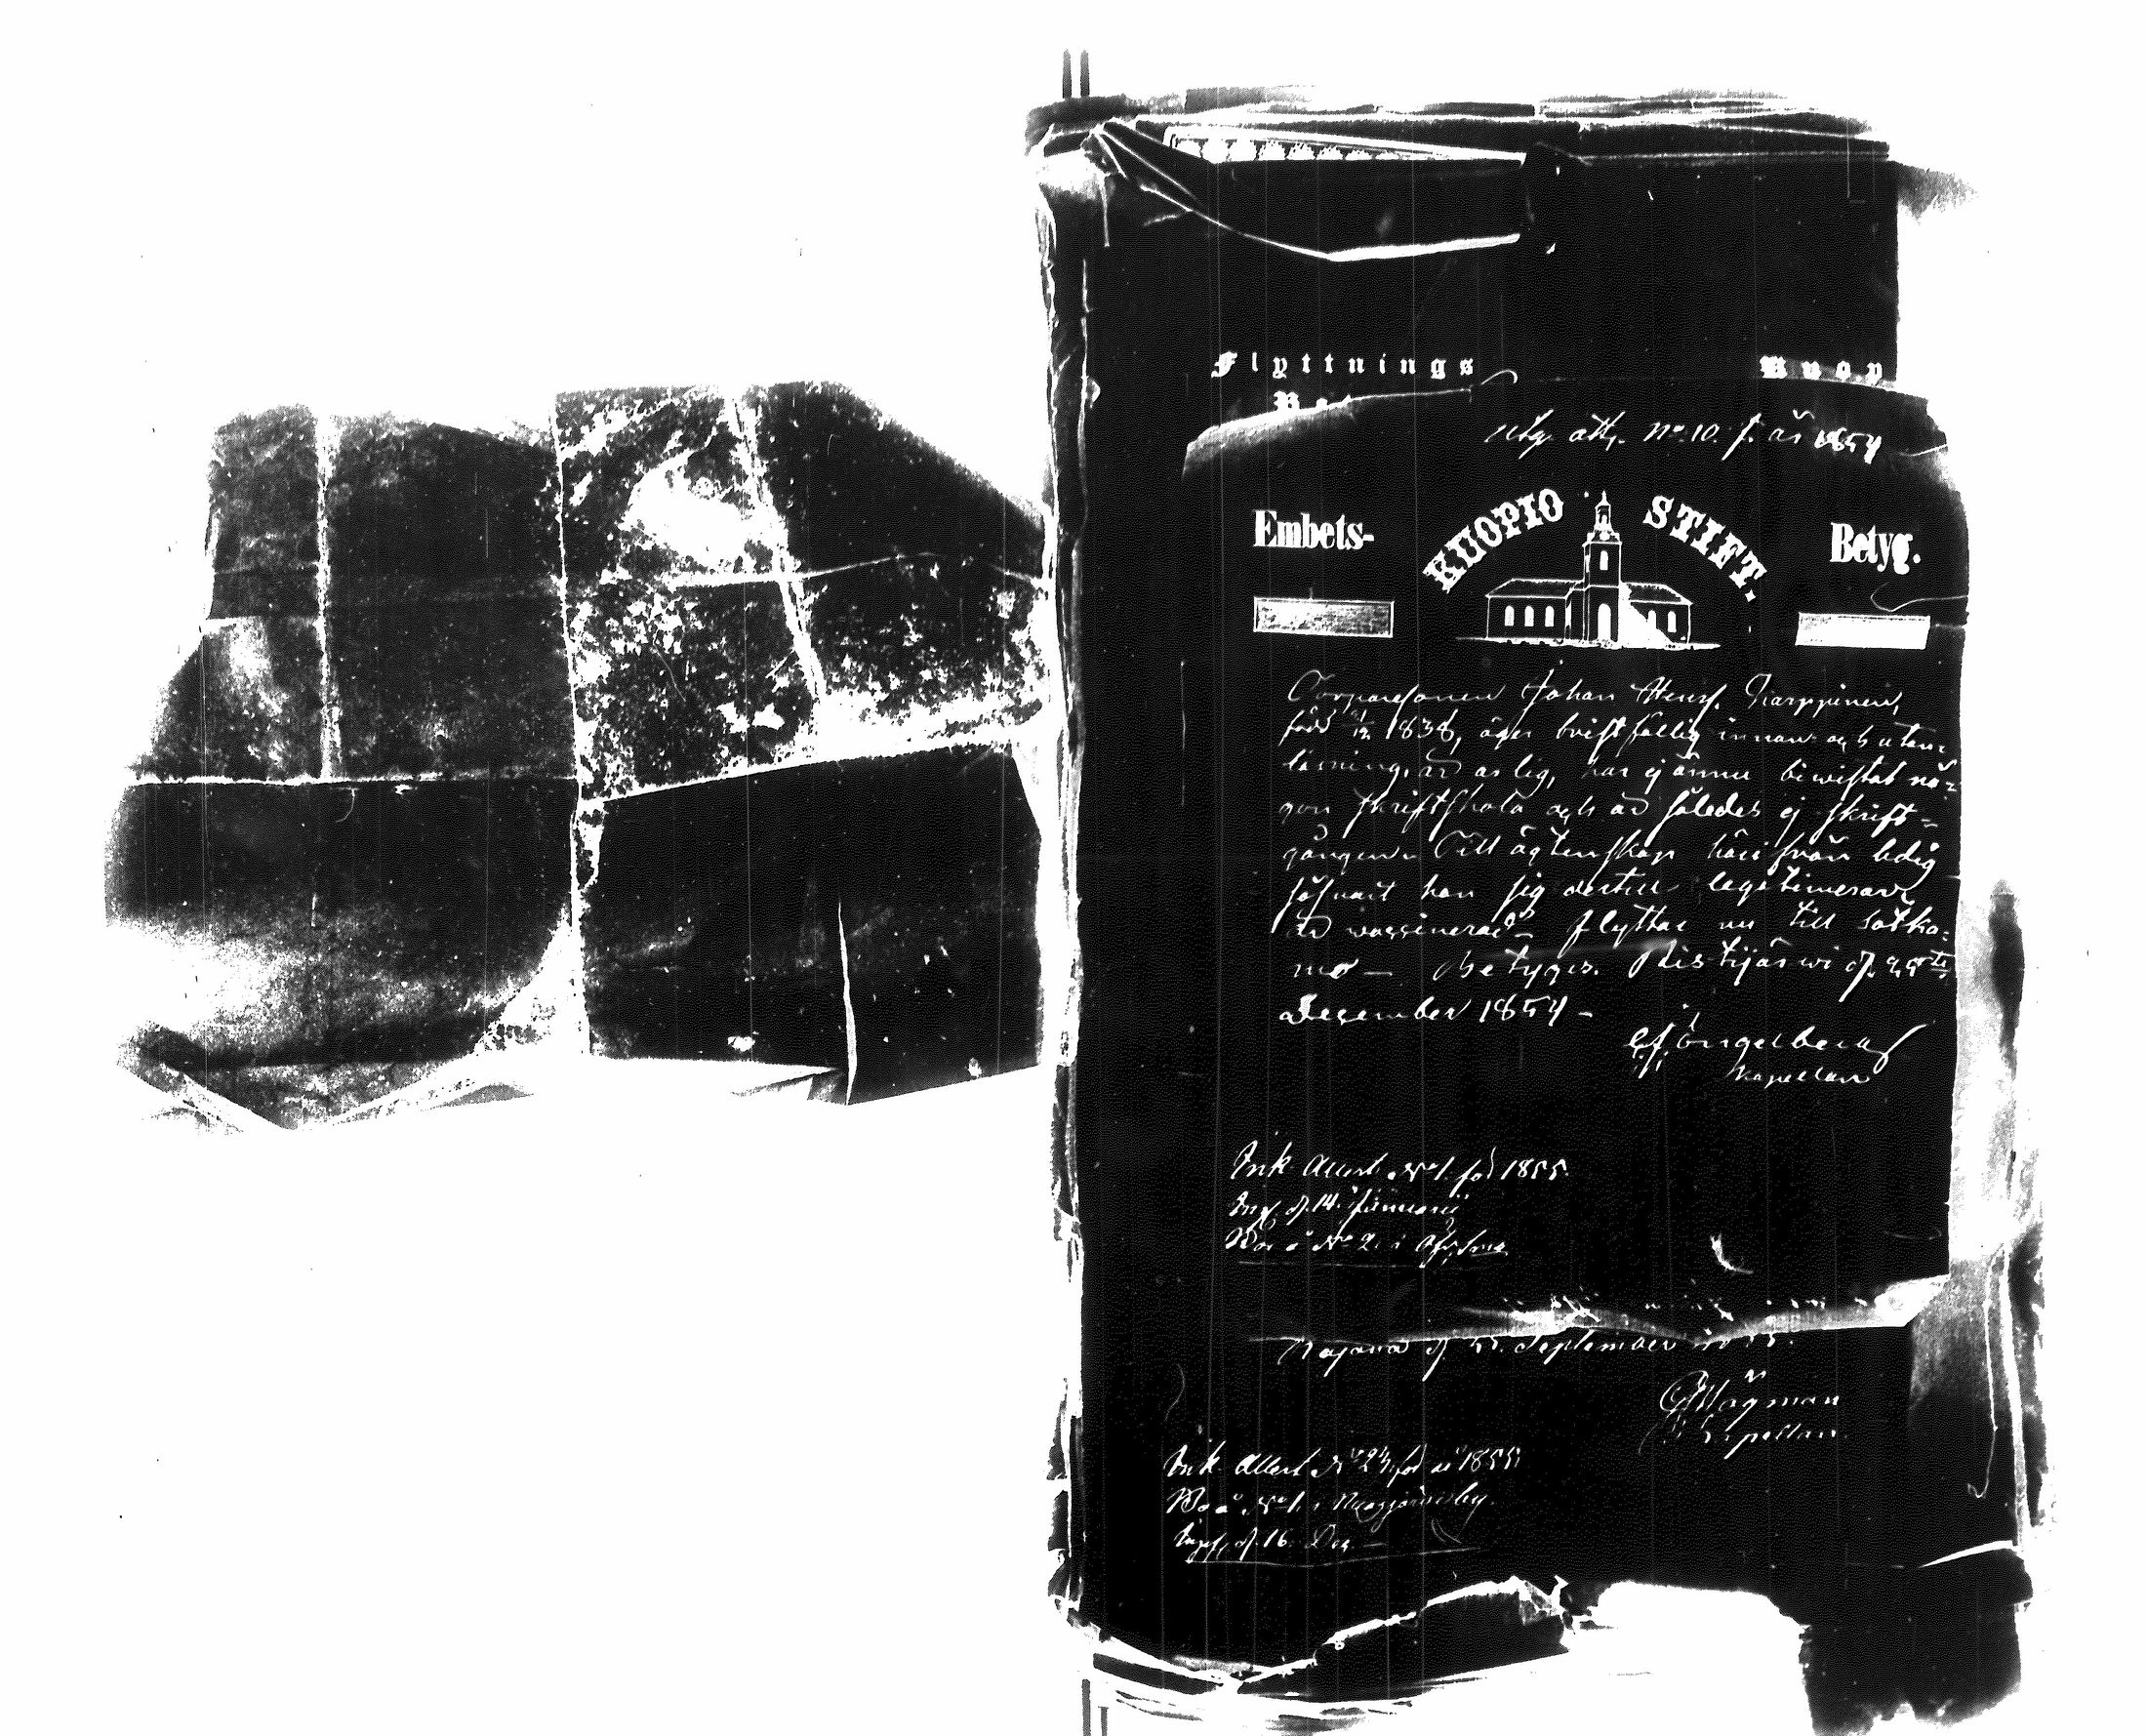 Flyttnings
Kuop
Bet
utg. att. No 10. f. år 1854
Embets-
KUOPIO STIFT.
Betyg.
Torparesonen Johan Henr. Karppinen,
född 1838, äger bristfällig innan och utan-
läsning, är ärlig, har ej ännu bewistat nå-
gon skriftskola och är således ej skrift-
gången. Till ägtenskap härifrån ledig
såframt han sig dertill legitimerar
är waccinerad - flyttar nu till Sotka-
mo - Betygas. Ristijärwi d.
December 1854 -
Engelberg
Kapellan
Ink Attest No 1. för 1855.
Ing. d. 14. Januarii
Bor å No 2 i
Kajana d. September
Högman
Kapellan.
Ink. Attest No 24 för år 1855
Bor å No 1. i
Ingif. d. 16. Dec.